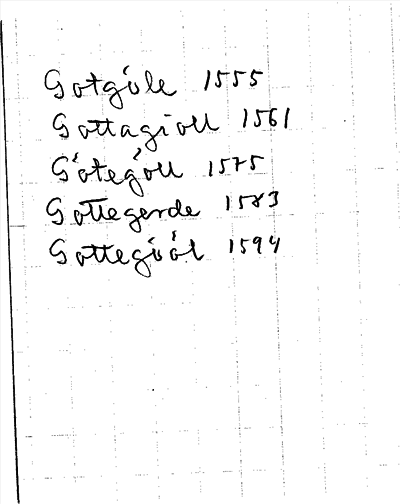 Gotgóle 1555
Gottagioll 1561
Gótególl 1575
Gottegerde 1583
Gottegióól 1594